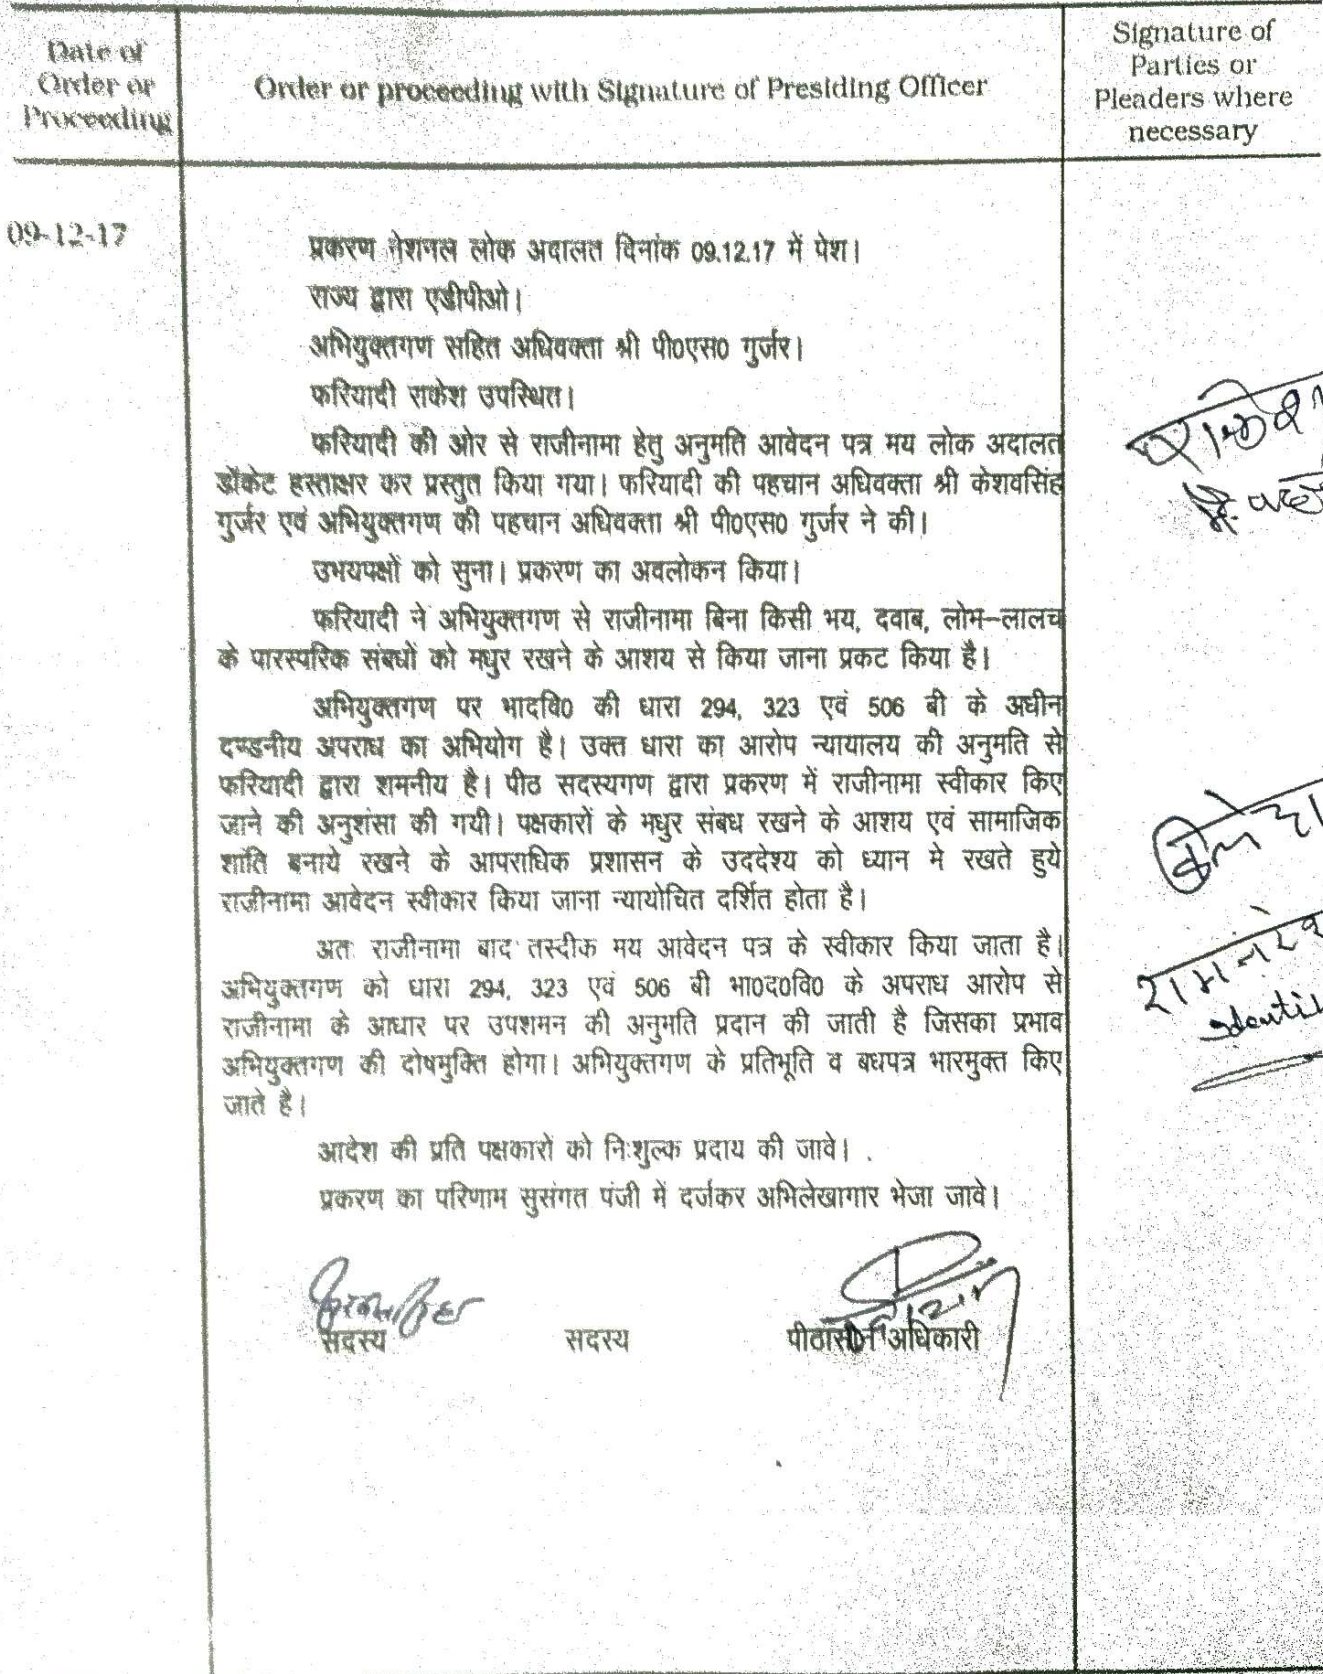 Date of
Order or
Proceeding
Order or proceeding with Signature of Presiding Officer
Signature of
Parties or
Pleaders where
necessary
09-12-17
प्रकरण नेशनल लोक अदालत दिनांक 09.12.17 में पेश।
राज्य द्वारा एडीपीओ।
अभियुक्तगण सहित अधिवक्ता श्री पी0एस0 गुर्जर।
फरियादी राकेश उपस्थित।
फरियादी की ओर से राजीनामा हेतु अनुमति आवेदन पत्र मय लोक अदालत
डॉकेट हस्ताक्षर कर प्रस्तुत किया गया। फरियादी की पहचान अधिवक्ता श्री केशवसिंह
गुर्जर एवं अभियुक्तगण की पहचान अधिवक्ता श्री पी0एस0 गुर्जर ने की।
उभयपक्षों को सुना। प्रकरण का अवलोकन किया।
फरियादी ने अभियुक्तगण से राजीनामा बिना किसी भय, दवाब, लोभ–लालच
के पारस्परिक संबधों को मधुर रखने के आशय से किया जाना प्रकट किया है।
अभियुक्तगण पर भादवि0 की धारा 294, 323 एवं 506 बी के अधीन
दण्डनीय अपराध का अभियोग है। उक्त धारा का आरोप न्यायालय की अनुमति से
फरियादी द्वारा शमनीय है। पीठ सदस्यगण द्वारा प्रकरण में राजीनामा स्वीकार किए
जाने की अनुशंसा की गयी। पक्षकारों के मधुर संबध रखने के आशय एवं सामाजिक
शांति बनाये रखने के आपराधिक प्रशासन के उददेश्य को ध्यान मे रखते हुये
राजीनामा आवेदन स्वीकार किया जाना न्यायोचित दर्शित होता है।
अतः राजीनामा बाद तस्दीक मय आवेदन पत्र के स्वीकार किया जाता है।
अभियुक्तगण को धारा 294, 323 एवं 506 बी भा0द0वि0 के अपराध आरोप से
राजीनामा के आधार पर उपशमन की अनुमति प्रदान की जाती है जिसका प्रभाव
अभियुक्तगण की दोषमुक्ति होगा। अभियुक्तगण के प्रतिभूति व बधपत्र भारमुक्त किए
जाते है।
आदेश की प्रति पक्षकारों को निःशुल्क प्रदाय की जावे।
प्रकरण का परिणाम सुसंगत पंजी में दर्जकर अभिलेखागार भेजा जावे।
सदस्य सदस्य पीठासीन अधिकारी